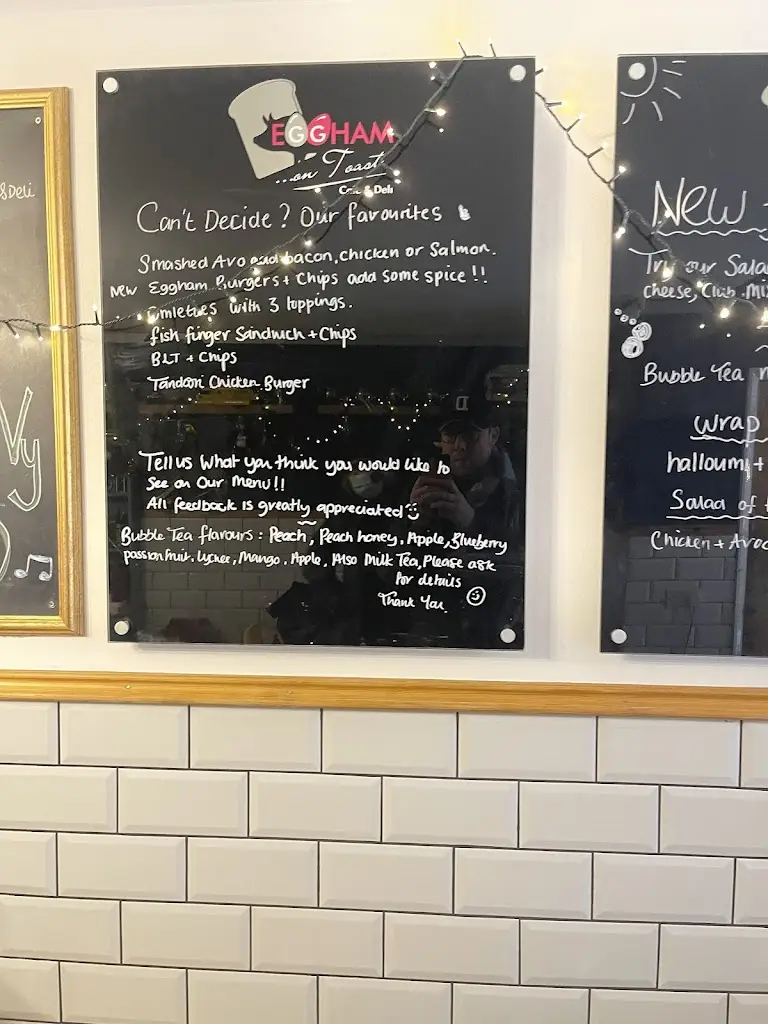 & Deli
vy
EGGHAM
...on Toast
Cafe & Deli
Can't Decide? Our favourites
Smashed Avo and bacon, chicken or Salmon.
New Eggham Burgers + Chips add some spice!!
omlettes with 3 toppings.
fish finger Sandwich + Chips
BLT + Chips
Tandoori Chicken Burger
Tell us What you think you would like to
See on Our menu!!
All feedback is greatly appreciated
Bubble Tea flavours: Peach, Peach honey, Apple, Blueberry
passion fruit, Lychee, Mango, Apple, Also Milk Tea, Please ask
for details
Thank You
New
Try our Sala
Cheese, Club, Mi
Bubble Tea
Wrap
halloumi +
Salad of
Chicken + Avo